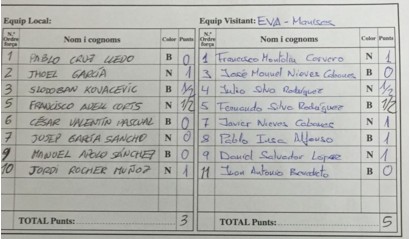 Equip Local: Equip Visitant: EVA - Monison
N.º Ordre força Nom i cognoms Color Punts N.º Ordre força Nom i cognoms Color Punts
1 PABLO CRUZ LLEDO B 0 1 Francisco Montolio Cervero N 1
2 JHOEL GARCÍA N 1 3 José Manuel Nieves Cabanes B 0
3 SLODOBAN KOVACEVIC B 1/2 4 Julio Silva Rodríguez N 1/2
5 FRANCISCO CORTS N 1/2 5 Fernando Silva Rodríguez B 1/2
6 CÉSAR VALENTÍN PASCUAL B 0 7 Javier Nieves Cabanes N 1
7 JOSEP GARCÍA SANCHO N 0 8 Pablo Insa Alfonso B 1
9 MANUEL APOLO SÁNCHEZ B 0 9 Daniel Salvador López N 1
10 JORDI ROCHER MUÑOZ N 1 11 Juan Antonio Benedeto B 0
TOTAL Punts: 3 TOTAL Punts: 5